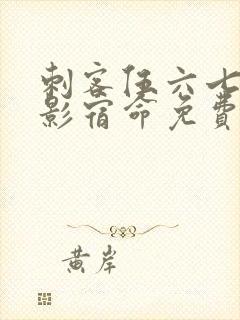 刺客伍六七
影宿命免费
黄岸